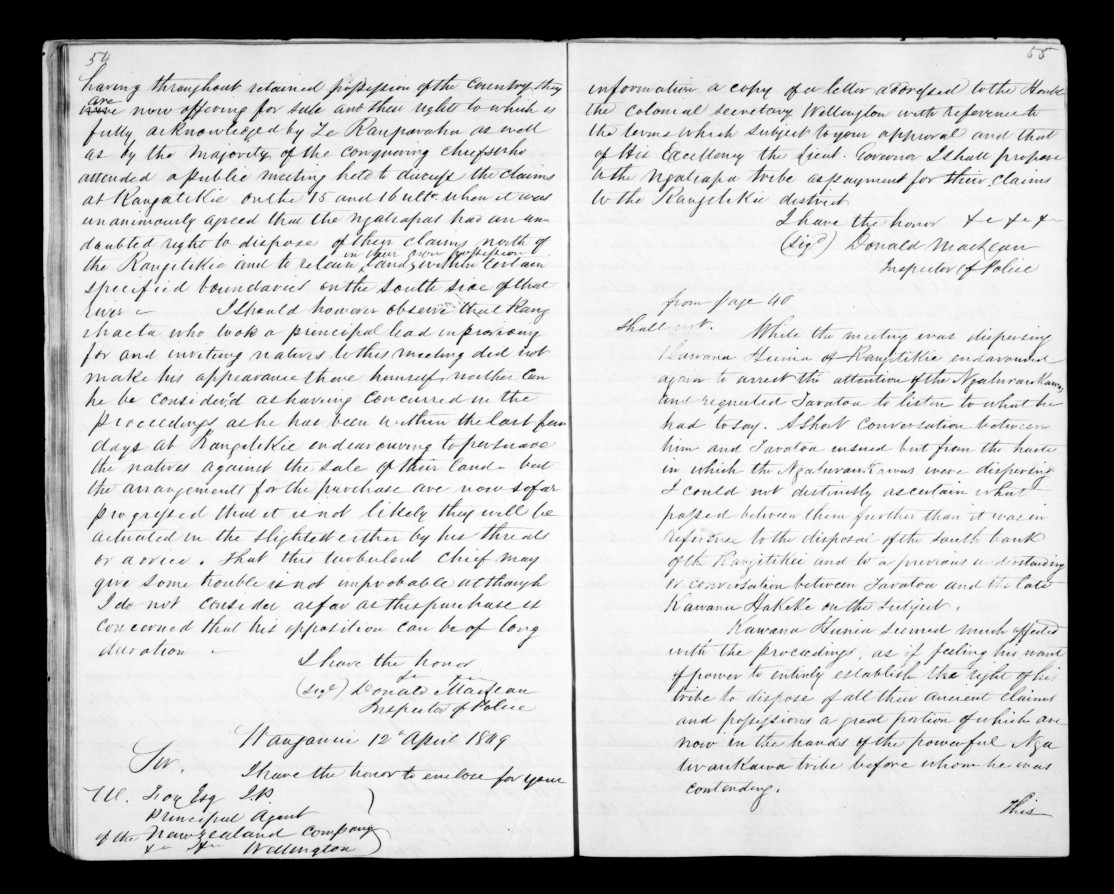 54
having throughout retained possession of the country they
are
have now offering for sale and their right to which is
fully acknowledged by Te Rauparaha as well
as by the majority of the conquering chiefs who
attended a public meeting held to discuss the claims
at Rangitikie on the 15 and 16 ulto. when it was
unanimously agreed that the Ngatiapas had an un
doubted right to dispose of their claims north of
in their own possession
the Rangitikie and to retain land within certain
specified boundaries on the south side of that
river — I should however observe that Rang
ihaeta who took a principal lead in
for and inviting natives to this meeting did not
make his appearance there himself, neither can
he be consider'd as having concurred in the
proceedings as he has been within the last few
days at Rangitikie endeavouring to persuade
the natives against the sale of their land — but
the arrangements for the purchase are now so far
progressed that it is not likely they will be
actuated in the slightest either by his threats
or advice. That this turbulent chief may
give some trouble is not improbable although
I do not consider as far as this purchase is
concerned that his opposition can be of long
duration —
I have the honor
&c &c
(sigd) Donald MacLean
Inspector of Police
Wanganui 12th April 1849
Sir,
I have the honor to enclose for your
W. Fox Esq J.P.
Principal Agent
of the New Zealand Company
&c &c Wellington
55
information a copy of a letter addressed to the Honble
the colonial secretary Wellington with reference to
the terms which subject to your approval and that
of His Excellency the Lieut. Governor I shall propose
to the Ngatiapa tribe as payment for their claims
to the Rangitikie district
I have the honor &c &c &c
(sigd) Donald MacLean
Inspector of Police
from page 40
shall not. While the meeting was dispersing
Kawana Hunia of Rangitikie endeavoured
again to arrest the attention of the Ngatiraukawa,
and requested Taratoa to listen to what he
had to say. A short conversation between
him and Taratoa ensued but from the haste
in which the Ngatiraukawas were dispersing
I could not distinctly ascertain what
passed between them further than it was in
reference to the disposal of the South bank
of the Rangitikie and to a previous understanding
or conversation between Taratoa and the late
Kawana Hakeke on the subject.
Kawana Hunia seemed much affected
with the proceedings, as if feeling his want
of power to entirely establish the right of his
tribe to dispose of all their ancient claims
and possessions a great portion of which are
now in the hands of the powerful Nga
tiraukawa tribe before whom he was
contending.
This